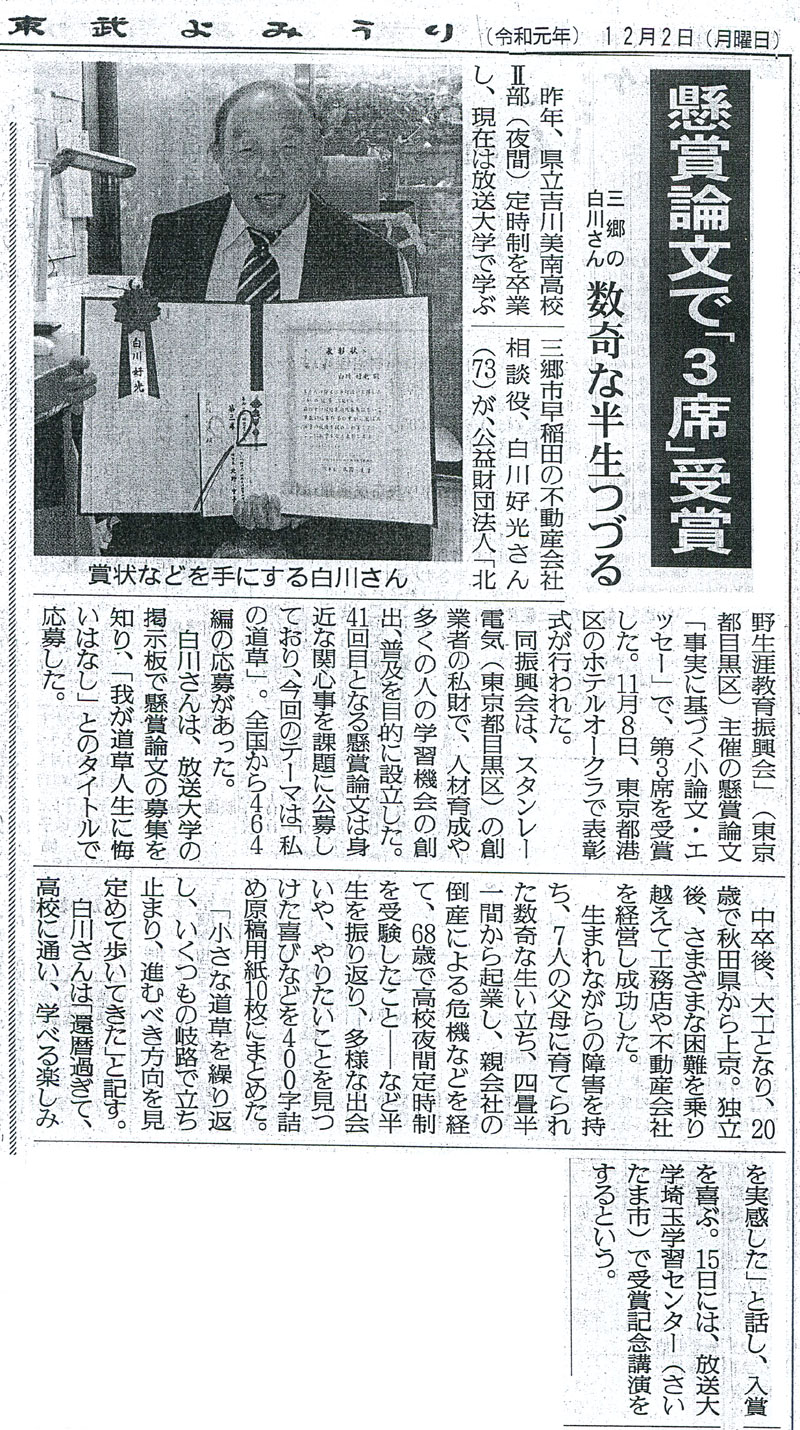 東武よみうり (令和元年) 12月2日(月曜日)
懸賞論文で「3席」受賞
三郷の
白川さん
数奇な半生つづる
昨年、県立吉川美南高校
Ⅱ部(夜間)定時制を卒業
し、現在は放送大学で学ぶ
三郷市早稲田の不動産会社
相談役、白川好光さん
(73)が、公益財団法人「北
野生涯教育振興会」(東京
都目黒区)主催の懸賞論文
「事実に基づく小論文・エ
ッセー」で、第3席を受賞
した。11月8日、東京都港
区のホテルオークラで表彰
式が行われた。
同振興会は、スタンレー
電気(東京都目黒区)の創
業者の私財で、人材育成や
多くの人の学習機会の創
出、普及を目的に設立した。
41回目となる懸賞論文は身
近な関心事を課題に公募し
ており、今回のテーマは「私
の道草」。全国から464
編の応募があった。
白川さんは、放送大学の
掲示板で懸賞論文の募集を
知り、「我が道草人生に悔
いはなし」とのタイトルで
応募した。
中卒後、大工となり、20
歳で秋田県から上京。独立
後、さまざまな困難を乗り
越えて工務店や不動産会社
を経営し成功した。
生まれながらの障害を持
ち、7人の父母に育てられ
た数奇な生い立ち、四畳半
一間から起業し、親会社の
倒産による危機などを経
て、68歳で高校夜間定時制
を受験したこと――など半
生を振り返り、多様な出会
いや、やりたいことを見つ
けた喜びなどを400字詰
め原稿用紙10枚にまとめた。
「小さな道草を繰り返
し、いくつもの岐路で立ち
止まり、進むべき方向を見
定めて歩いてきた」と記す。
白川さんは「還暦過ぎて、
高校に通い、学べる楽しみ
を実感した」と話し、入賞
を喜ぶ。15日には、放送大
学埼玉学習センター(さい
たま市)で受賞記念講演を
するという。
白川好光
表彰状
賞状などを手にする白川さん